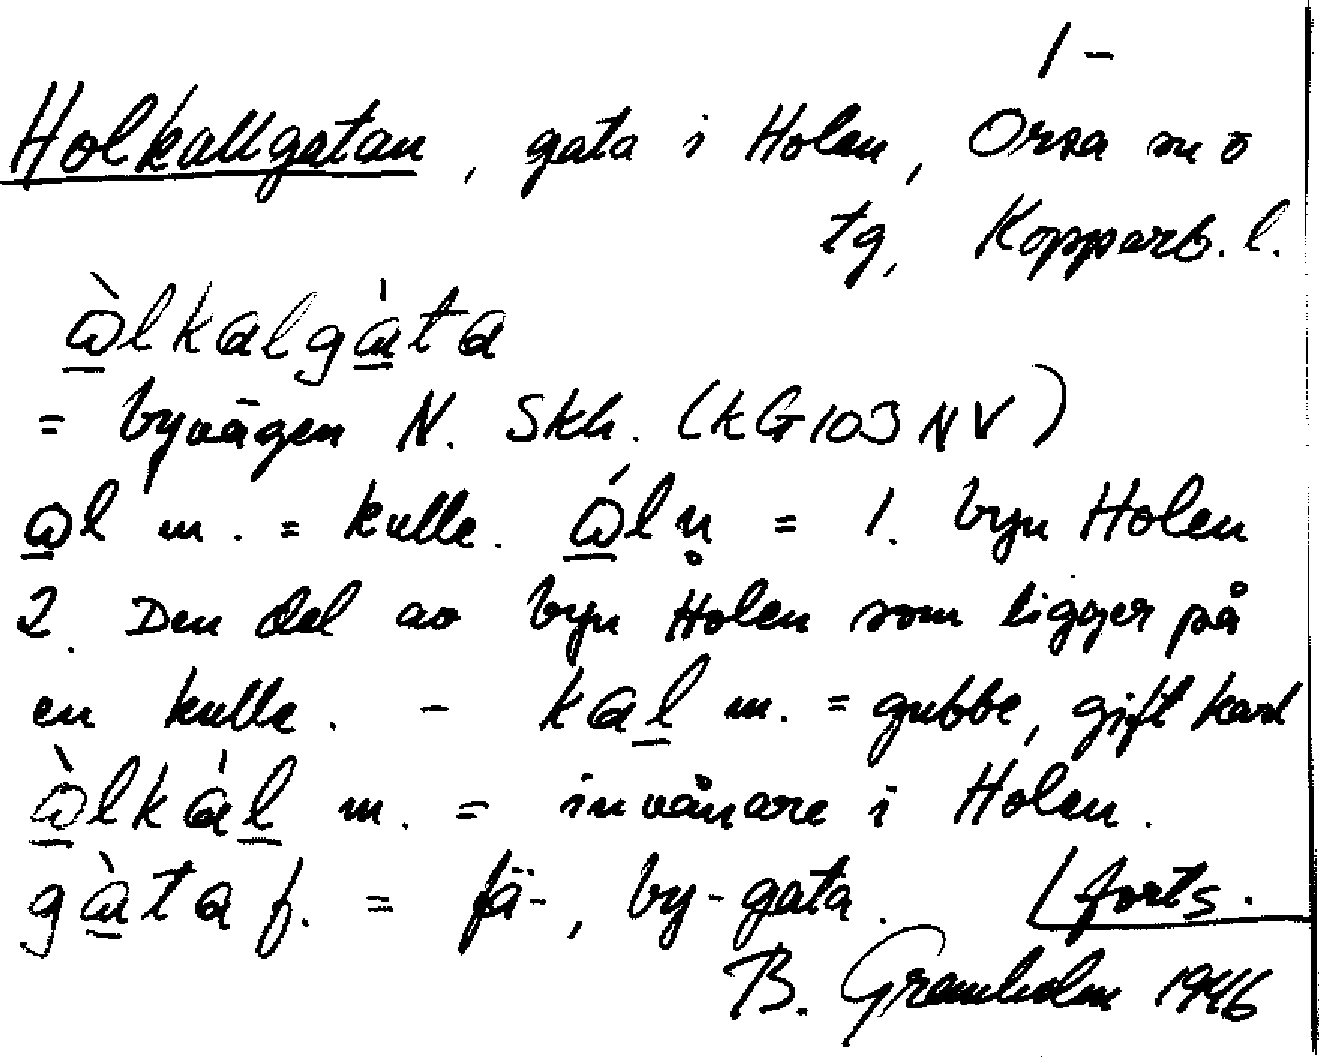 1 -
Holkallgatan, gata i Holen, Orsa sn o
tg, Kopparb. l.
ὰlkalgàta
= byvägen N. Skh. (kG103NV)
al m. = kulle. áln̥ = 1. byn Holen
2. Den del av byn Holen som ligger på
en kulle. - kal m. = gubbe, gift karl
àlkàl m. = invånare i Holen.
gàta f. = fä-, by-gata. / forts.
B. Gramholm 1946